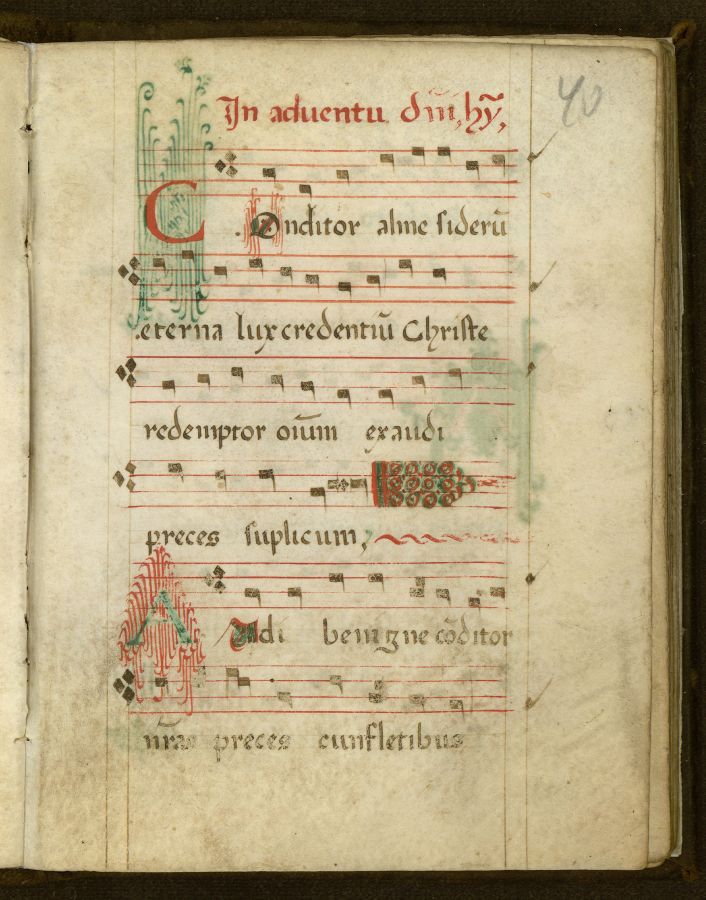 40
In aduentu dni, hỹ,
Conditor alme siderū
.eterna lux credentiū Christe
redemptor oīum exaudi
preces suplicum,
Audi benigne cōditor
nr̄as preces cunfletibus